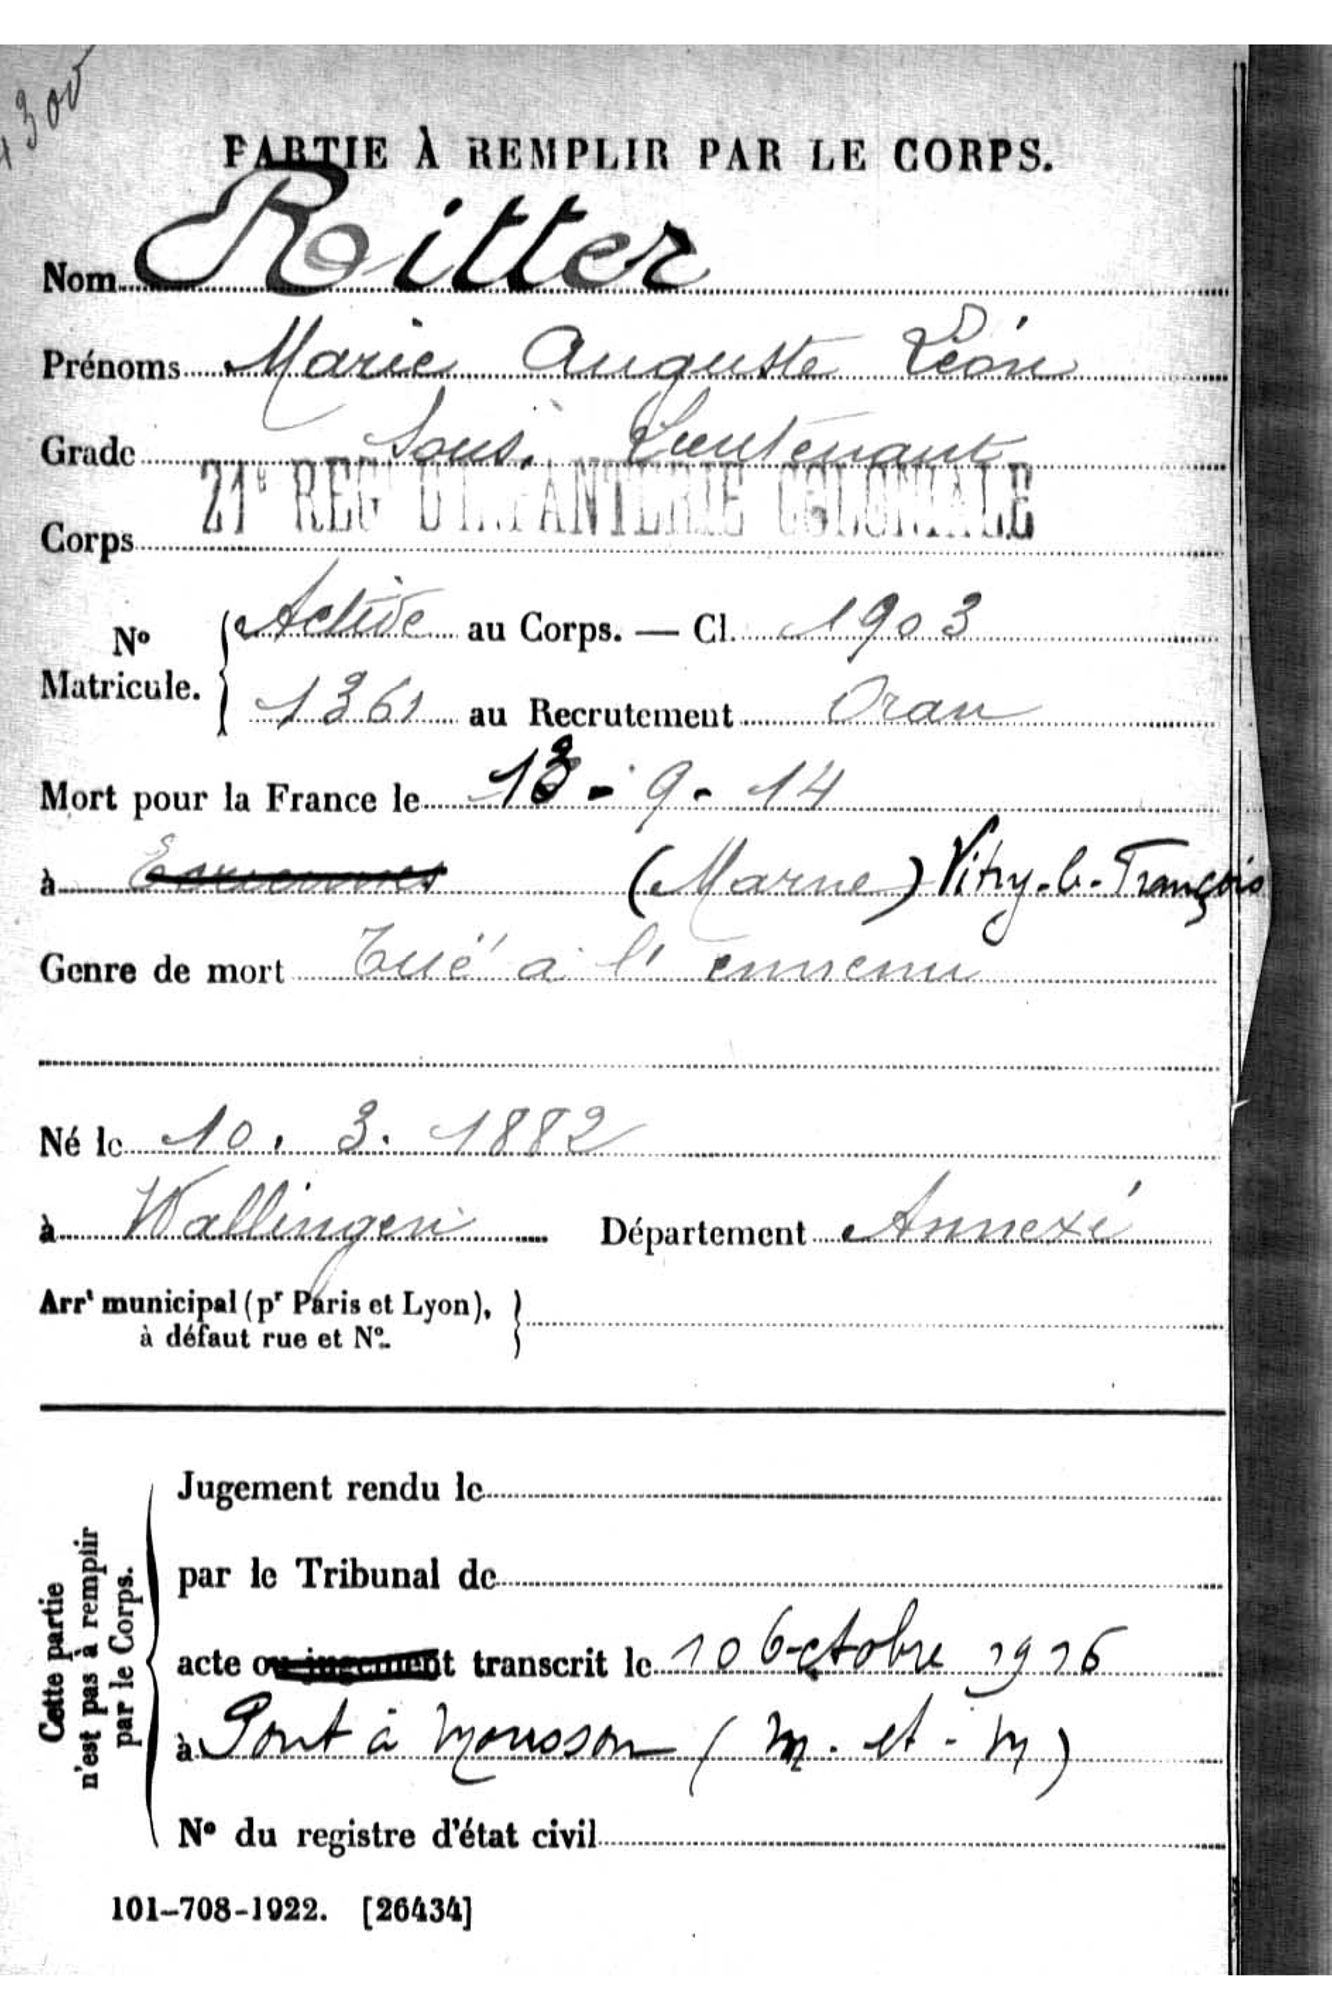 300
PARTIE À REMPLIR PAR LE CORPS.
Nom Ritter
Prénoms Marie Auguste Léon
Grade Sous. Lieutenant
Corps 21e REGt D'INFANTERIE COLONIALE
No Matricule. { Active au Corps. — Cl. 1903
1361 au Recrutement Oran
Mort pour la France le 13 - 9 - 14
à (Marne) Vitry-le-François
Genre de mort Tué à l'ennemi
Né le 10. 3. 1882
à Wallingen Département Annexé
Arrt municipal (pr Paris et Lyon), }
à défaut rue et No.
Cette partie n'est pas à remplir par le Corps.
Jugement rendu le
par le Tribunal de
acte ou jugement transcrit le 10 Octobre 1916
à Pont à Mousson (M. et - M)
No du registre d'état civil
101-708-1922. [26434]